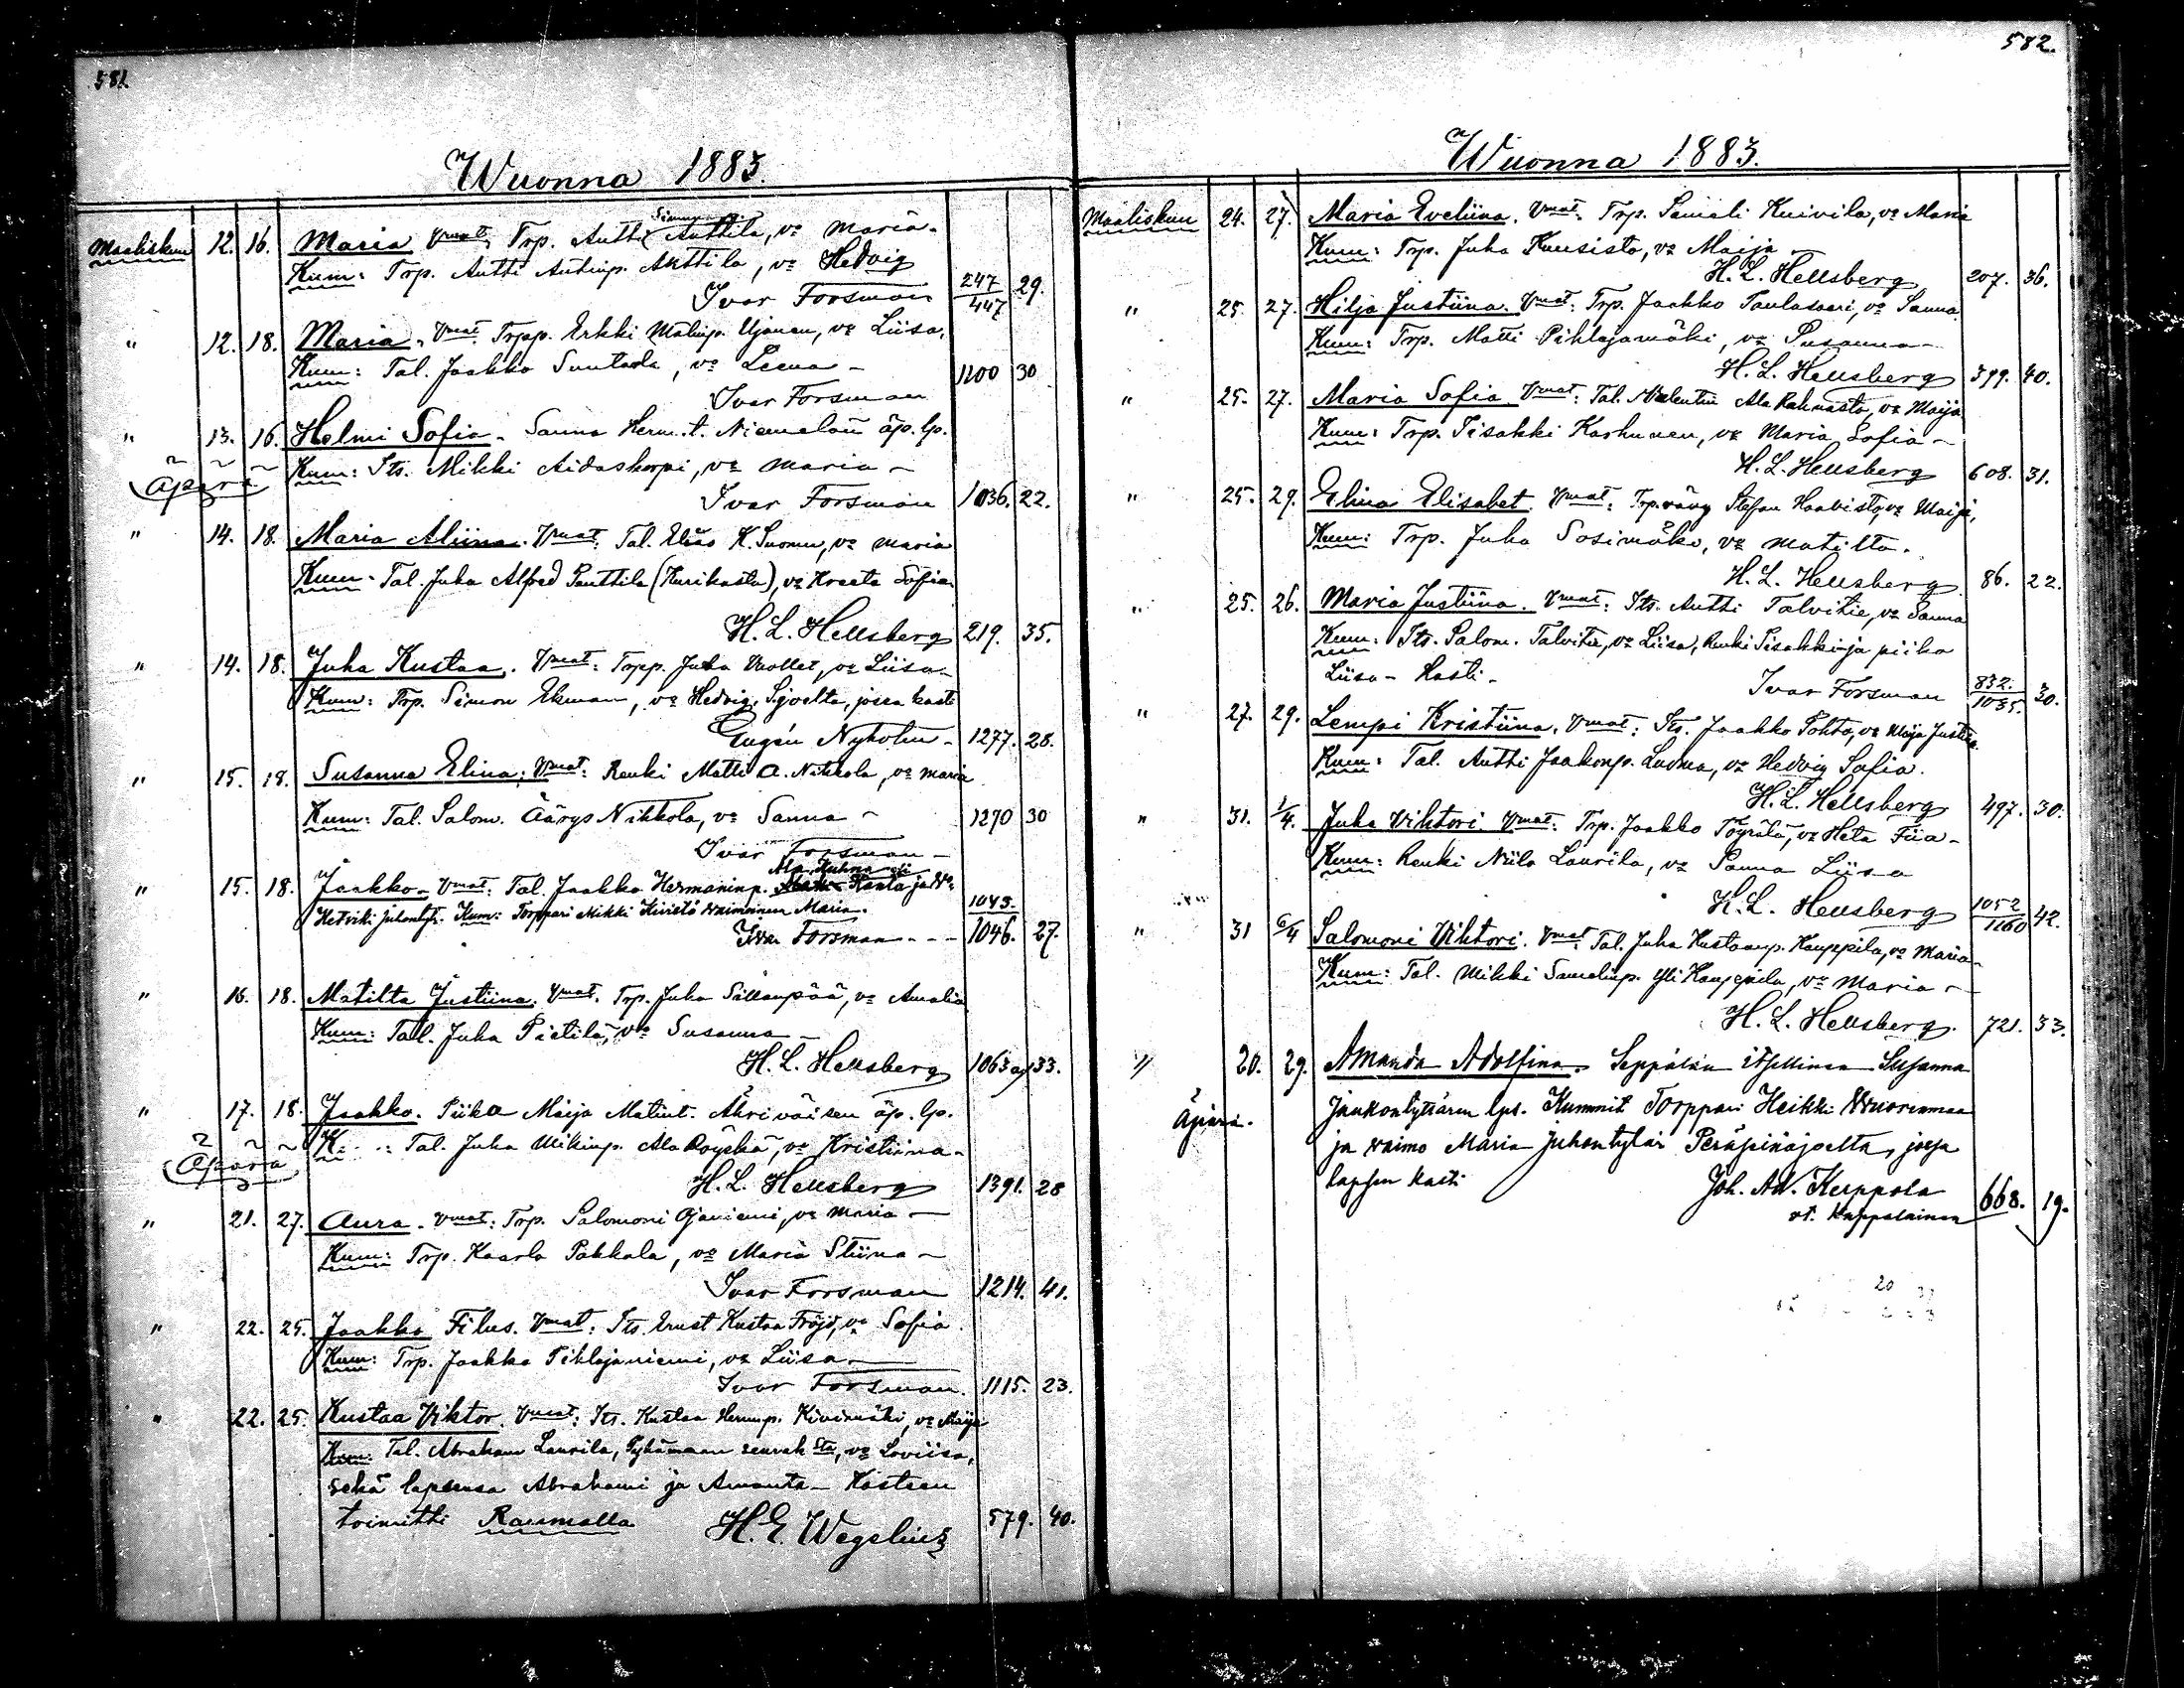 581.
Wuonna 1883.
Maaliskuun 12. 16. Maria. Vmat. Trp. Antti Simunp. Anttila, vo Maria.
Kum: Trp. Antti Antinp. Anttila, vo Hedvig
Ivar Forsman 247/447 29.
" 12. 18. Maria. Vmat. Trpp. Erkki Matinp. Ujanen, vo Liisa.
Kum: Tal. Jaakko Suutala, vo Leena - 1200 30
Ivar Forsman
" 13. 16. Helmi Sofia. Sanna Herm.t. Niemelän äp. lp.
Äpärä Kum: Its. Mikki Aidaskorpi, vo Maria -
Ivar Forsman 1036. 22.
" 14. 18. Maria Aliina. Vmat: Tal. Elias K. Luoma, vo Maria
Kum. Tal. Juha Alfred Panttila (Kurikasta), vo Kreeta Sofia.
H. L. Hellsberg 219. 35.
" 14. 18. Juha Kustaa. Vmat: Trpp. Juha Vuollet, vo Liisa -
Kum: Trp. Simon Ekman, vo Hedvig, jossa kaste
Eugén Nyholm - 1277. 28.
" 15. 18. Susanna Elina. Vmat: Renki Matti A. Nikkola, vo Maria
Kum: Tal. Salom. Äärys Nikkola, vo Sanna - 1270 30
Ivar Forsman -
" 15. 18. Jaakko. Vmat: Tal. Jaakko Hermaninp. Kanta ja Wo.
Hetviki Juhontyt. Kum: Torppari Mikki Kivistö Waimoineen Maria. 1043.
Ivar Forsman - - - 1046. 27.
" 16. 18. Matilta Justiina. Vmat. Trp. Juha Sillanpää, vo Amalia
Kum: Tall. Juha Pietilä, vo Susanna -
H. L. Hellsberg 1063 33.
" 17. 18. Jaakko. Piika Maija Matint. Äkriväisen äp. lp.
Äpärä K: Tal. Juha Mikinp. Ala Röyskä, vo Kristiina -
H. L. Hellsberg 1391. 28
" 21. 27. Aura. Vmat: Trp. Salomoni Ojaniemi, vo Maria -
Kum: Trp. Kaarlo Pakkala, vo Maria Stiina -
Ivar Forsman 1214. 41.
" 22. 25. Jaakko Filus. Vmat: Its. Ernst Kustaa Fröjd, vo Sofia.
Kum: Trp. Jaakko Pihlajaniemi, vo Liisa -
Ivar Forsman. 1115. 23.
" 22. 25. Kustaa Viktor. Vmat: Its. Kustaa Hermp. Kivimäki, vo Maija
Kum: Tal. Abraham Laurila, Pyhämaan seurak sta, vo Loviisa,
sekä lapsensa Abrahami ja Amanta - Kasteen
toimitti Raumalla H. E. Wegelius 579. 40.
582.
Wuonna 1883.
Maaliskuun 24. 27. Maria Eveliina. Vmat. Trp. Samali Knivila, vo Maria
Kum: Trp. Juha Kuusisto, vo Maija -
H. L. Hellsberg 207. 36.
" 25. 27. Hilja Justiina. Vmat: Trp. Jaakko Paulasaari, vo Sanna.
Kum: Trp. Matti Pihlajamäki, vo Susanna -
H. L. Hellsberg 399. 40.
" 25. 27. Maria Sofia. Vmat: Tal. Valentin Ala Rahnasto, vo Maija
Kum: Trp. Iisakki Karhunen, vo Maria Sofia -
H. L. Hellsberg 608. 31.
" 25. 29. Elina Elisabet. Vmat: Trp.vävy Stefan Haavisto, vo Maija,
Kum: Trp. Juha Sosimäki, vo Matilta.
H. L. Hellsberg 86. 22.
" 25. 26. Maria Justiina. Vmat: Its. Antti Talvitie, vo Sanna
Kum: Its. Salom. Talvitie, vo Liisa, Renki Iisakki ja piika
Liisa - Kasti -
Ivar Forsman 832./1035. 30.
" 27. 29. Lempi Kristiina. Vmat: Its. Jaakko Pohto, vo Maija Justiina
Kum: Tal. Antti Jaakonp. Luoma, vo Hedvig Sofia.
H. L. Hellsberg 497. 30.
" 31. 1/4. Juha Vihtori. Vmat: Trp. Jaakko Töyrälä, vo Heta Fiia -
Kum: Renki Niilo Laurila, vo Sanna Liisa
H. L. Hellsberg 1052/1260 42.
" 31 6/4 Salomoni Vihtori. Vmat. Tal. Juha Kustaanp. Kauppila, vo Maria -
Kum: Tal. Mikki Samelinp. Yli Kauppila, vo Maria -
H. L. Hellsberg. 721. 33.
" 20. 29. Amanda Adolfina. Seppälän itsellinen Susanna
Äpärä. Jaakontyttären lps. Kummit Torppari Heikki Wuorenmaa
ja waimo Maria Juhontytär Peräseinäjoelta, jossa
lapsen kasti Joh. Ad. Keppola
vt. kappalainen 668. 19.